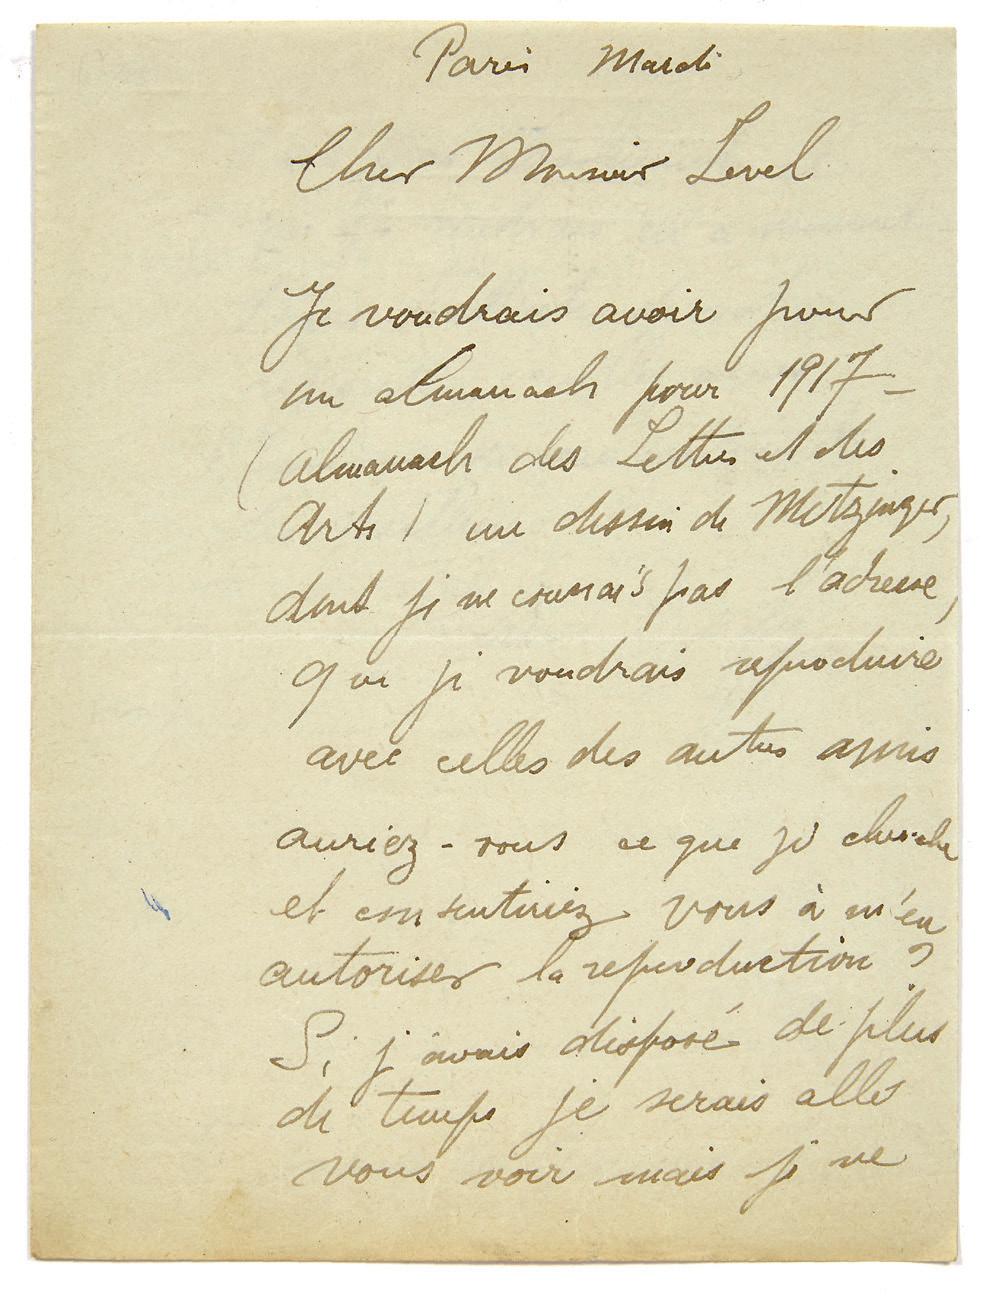 Paris Mardi
Cher Monsieur Level
Je voudrais avoir pour
un almanach pour 1917 -
(almanach des Lettres et des
Arts) un dessin de Metzinger,
dont je ne connais pas l'adresse,
que je voudrais reproduire
avec celles des autres amis
auriez-vous ce que je cherche
et consentiriez vous à m'en
autoriser la reproduction ?
Si j'avais disposé de plus
de temps je serais allé
vous voir mais je ne